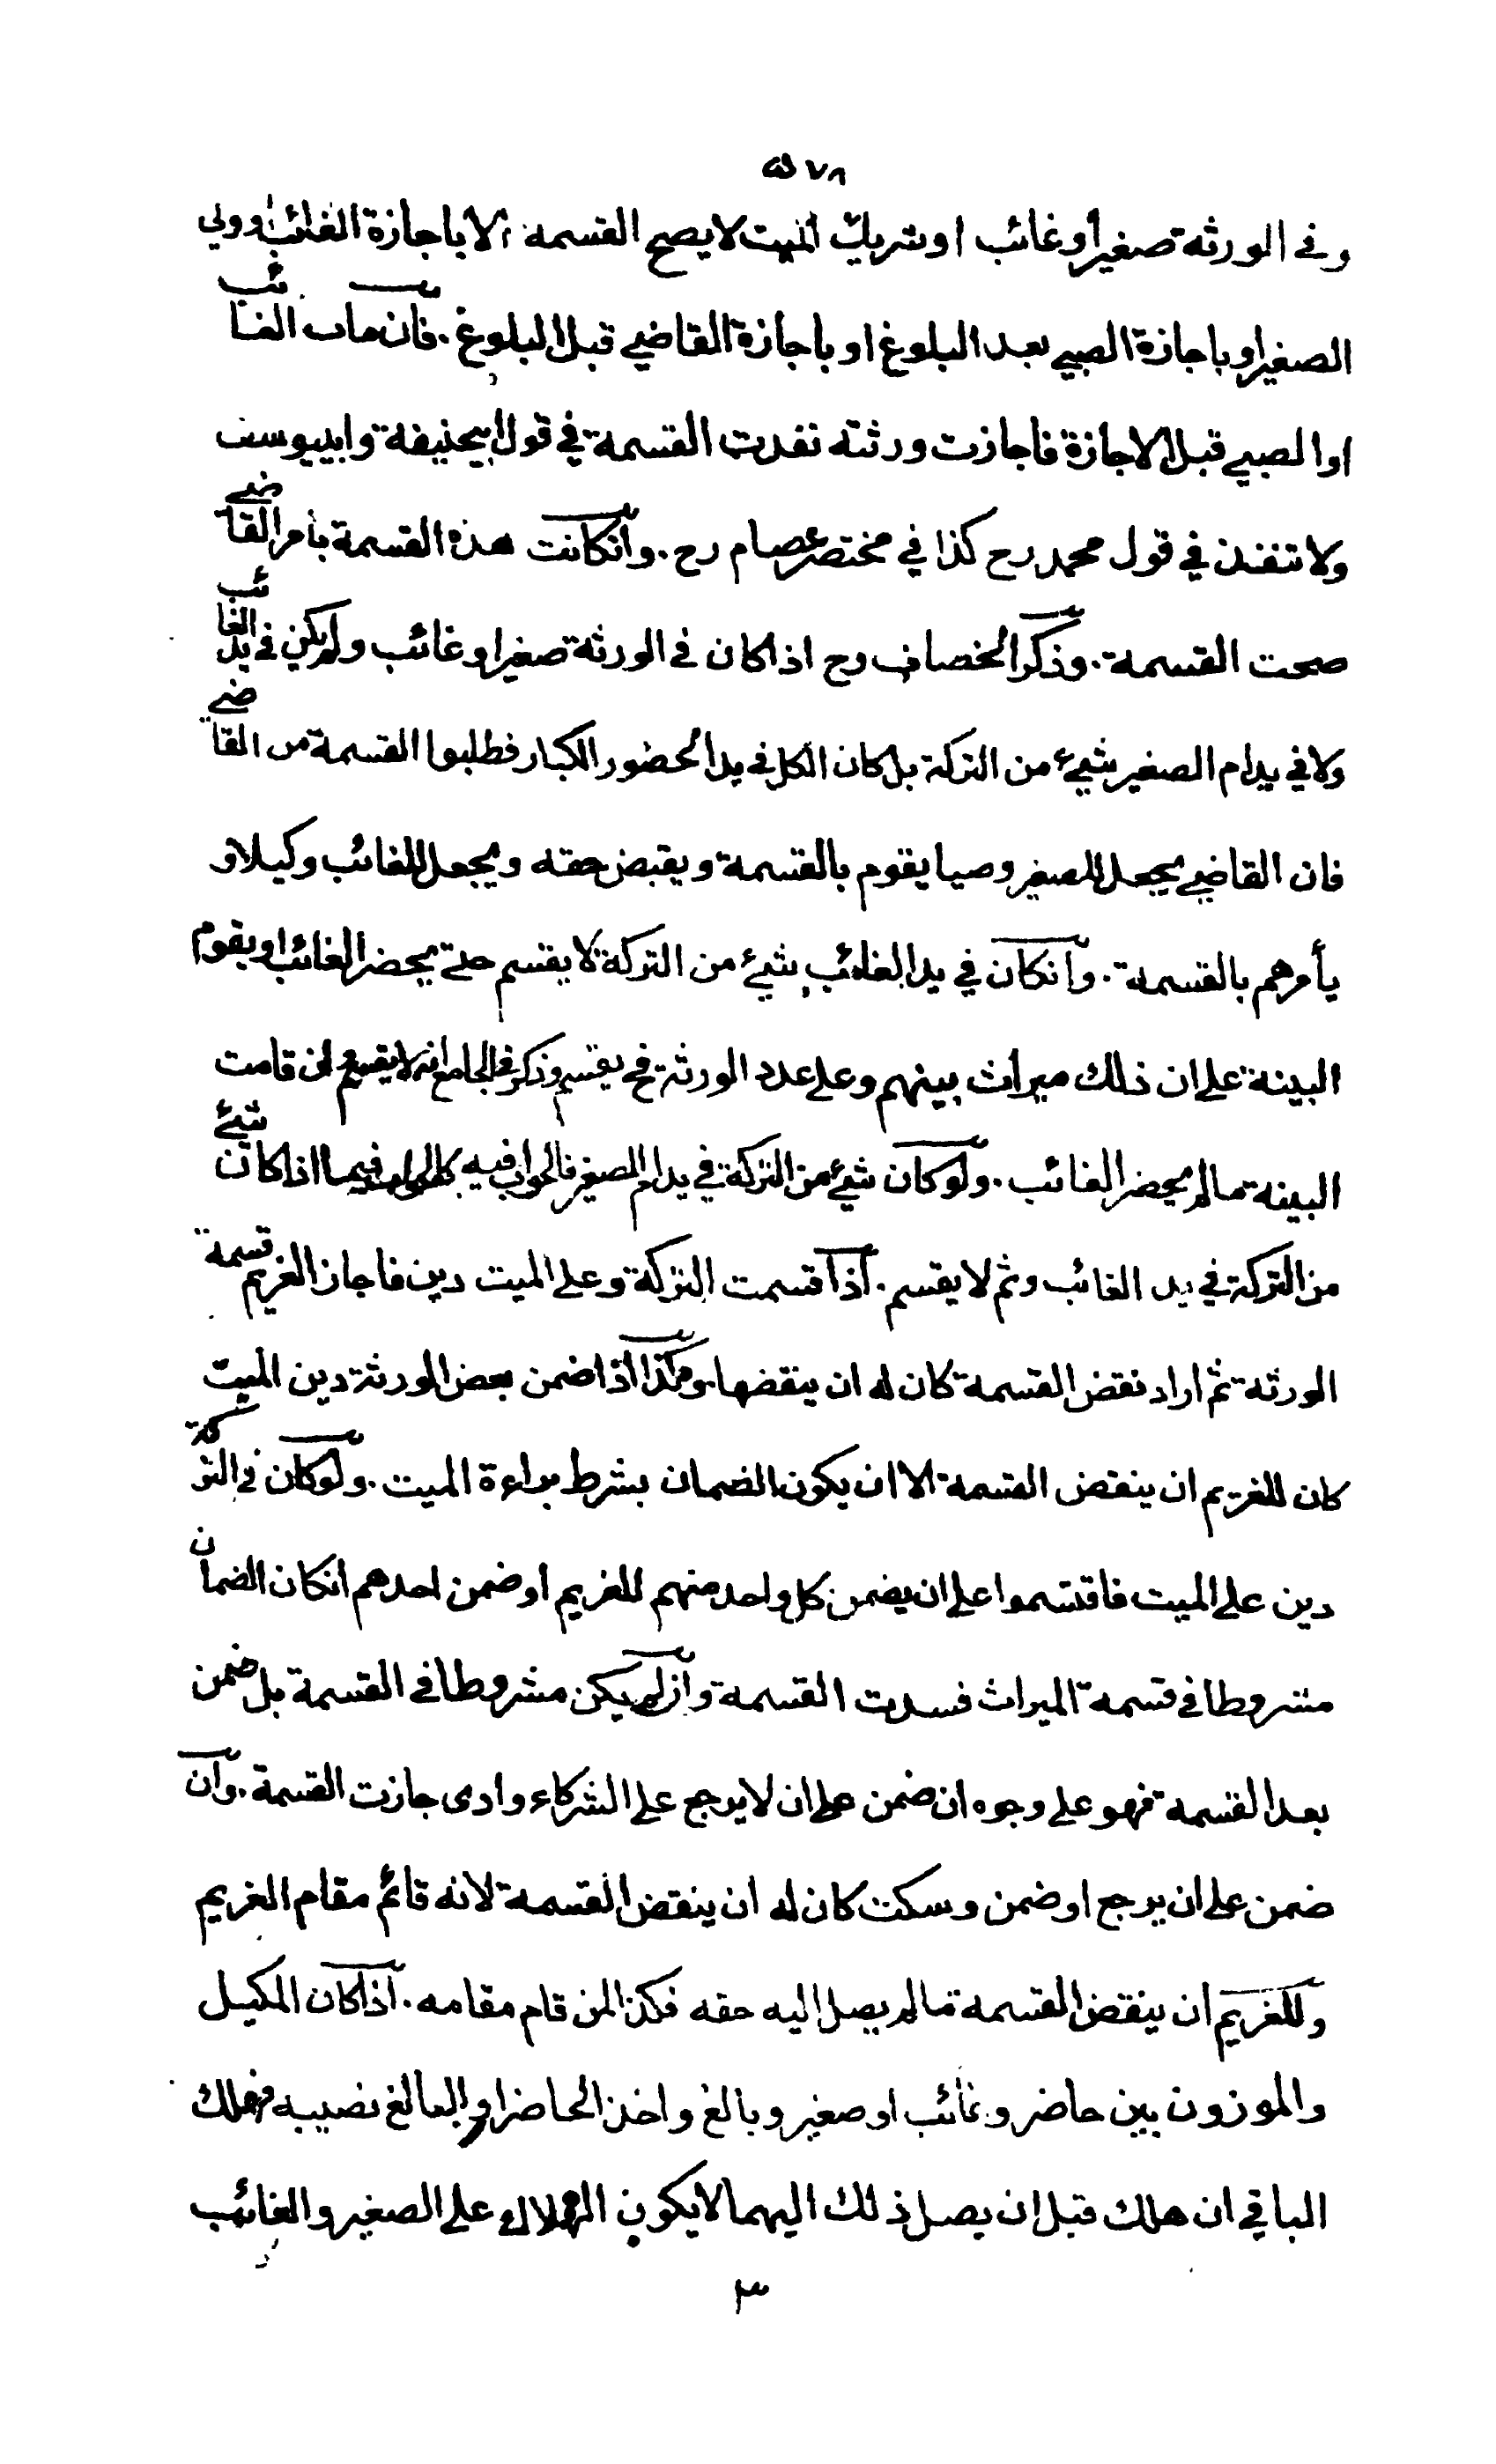 ٥٧٨
وفي الورثة صغير أو غائب او شريك الميت لا يصح القسمة الا باجازة الغائب او ولي
الصغير او باجازة الصبي بعد البلوغ او باجازة القاضي قبل البلوغ . فان مات الغائب
او الصبي قبل الاجازة فاجازت ورثته نفذت القسمة في قول ابيحنيفة وابييوسف
ولا تنفذ في قول محمد رح كذا في مختصر عصام رح . وانكانت هذه القسمة بأمر القاضي
صحت القسمة . وذكر الخصاف رح اذا كان في الورثة صغير او غائب ولم يكن في يد الغائب
ولا في يد ام الصغير شيء من التركة بل كان الكل في يد الحضور الكبار فطلبوا القسمة من القاضي
فان القاضي يجعل للصغير وصيا يقوم بالقسمة ويقبض حقه ويجعل للغائب وكيلا و
يأمرهم بالقسمة . وانكان في يد الغائب شيئ من التركة لا يقسم حتى يحضر الغائب او يقوم
البينة على ان ذلك ميراث بينهم وعلى عدد الورثة فح يقسم وذكر في الجامع انه لا يقسم وان قامت
البينة مالم يحضر الغائب . ولو كان شيئ من التركة في يد ام الصغير فالجواب فيه كالجواب فيما اذا كان شيئ
من التركة في يد الغائب وثم لا يقسم . اذا قسمت التركة وعلى الميت دين فاجاز الغريم قسمة
الورثة ثم اراد نقض القسمة كان له ان ينقضها . وهكذا اذا ضمن بعض الورثة دين الميت
كان للغريم ان ينقض القسمة الا ان يكون الضمان بشرط براءة الميت . ولو كان في التركة
دين على الميت فاقتسموا على ان يضمن كل واحد منهم للغريم او ضمن احدهم انكان الضمان
مشروطا في قسمة الميراث فسدت القسمة وان لم يكن مشروطا في القسمة بل ضمن
بعد القسمة فهو على وجوه ان ضمن على ان لا يرجع على الشركاء وادى جازت القسمة . وان
ضمن على ان يرجع او ضمن وسكت كان له ان ينقض القسمة لانه قائم مقام الغريم
وللغريم ان ينقض القسمة مالم يصل اليه حقه فكذا لمن قام مقامه . اذا كان المكيل
والموزون بين حاضر وغائب او صغير وبالغ واخذ الحاضر او البالغ نصيبه فهلك
الباقي ان هلك قبل ان يصل ذلك اليهما لا يكون الهلاك على الصغير والغائب
٣